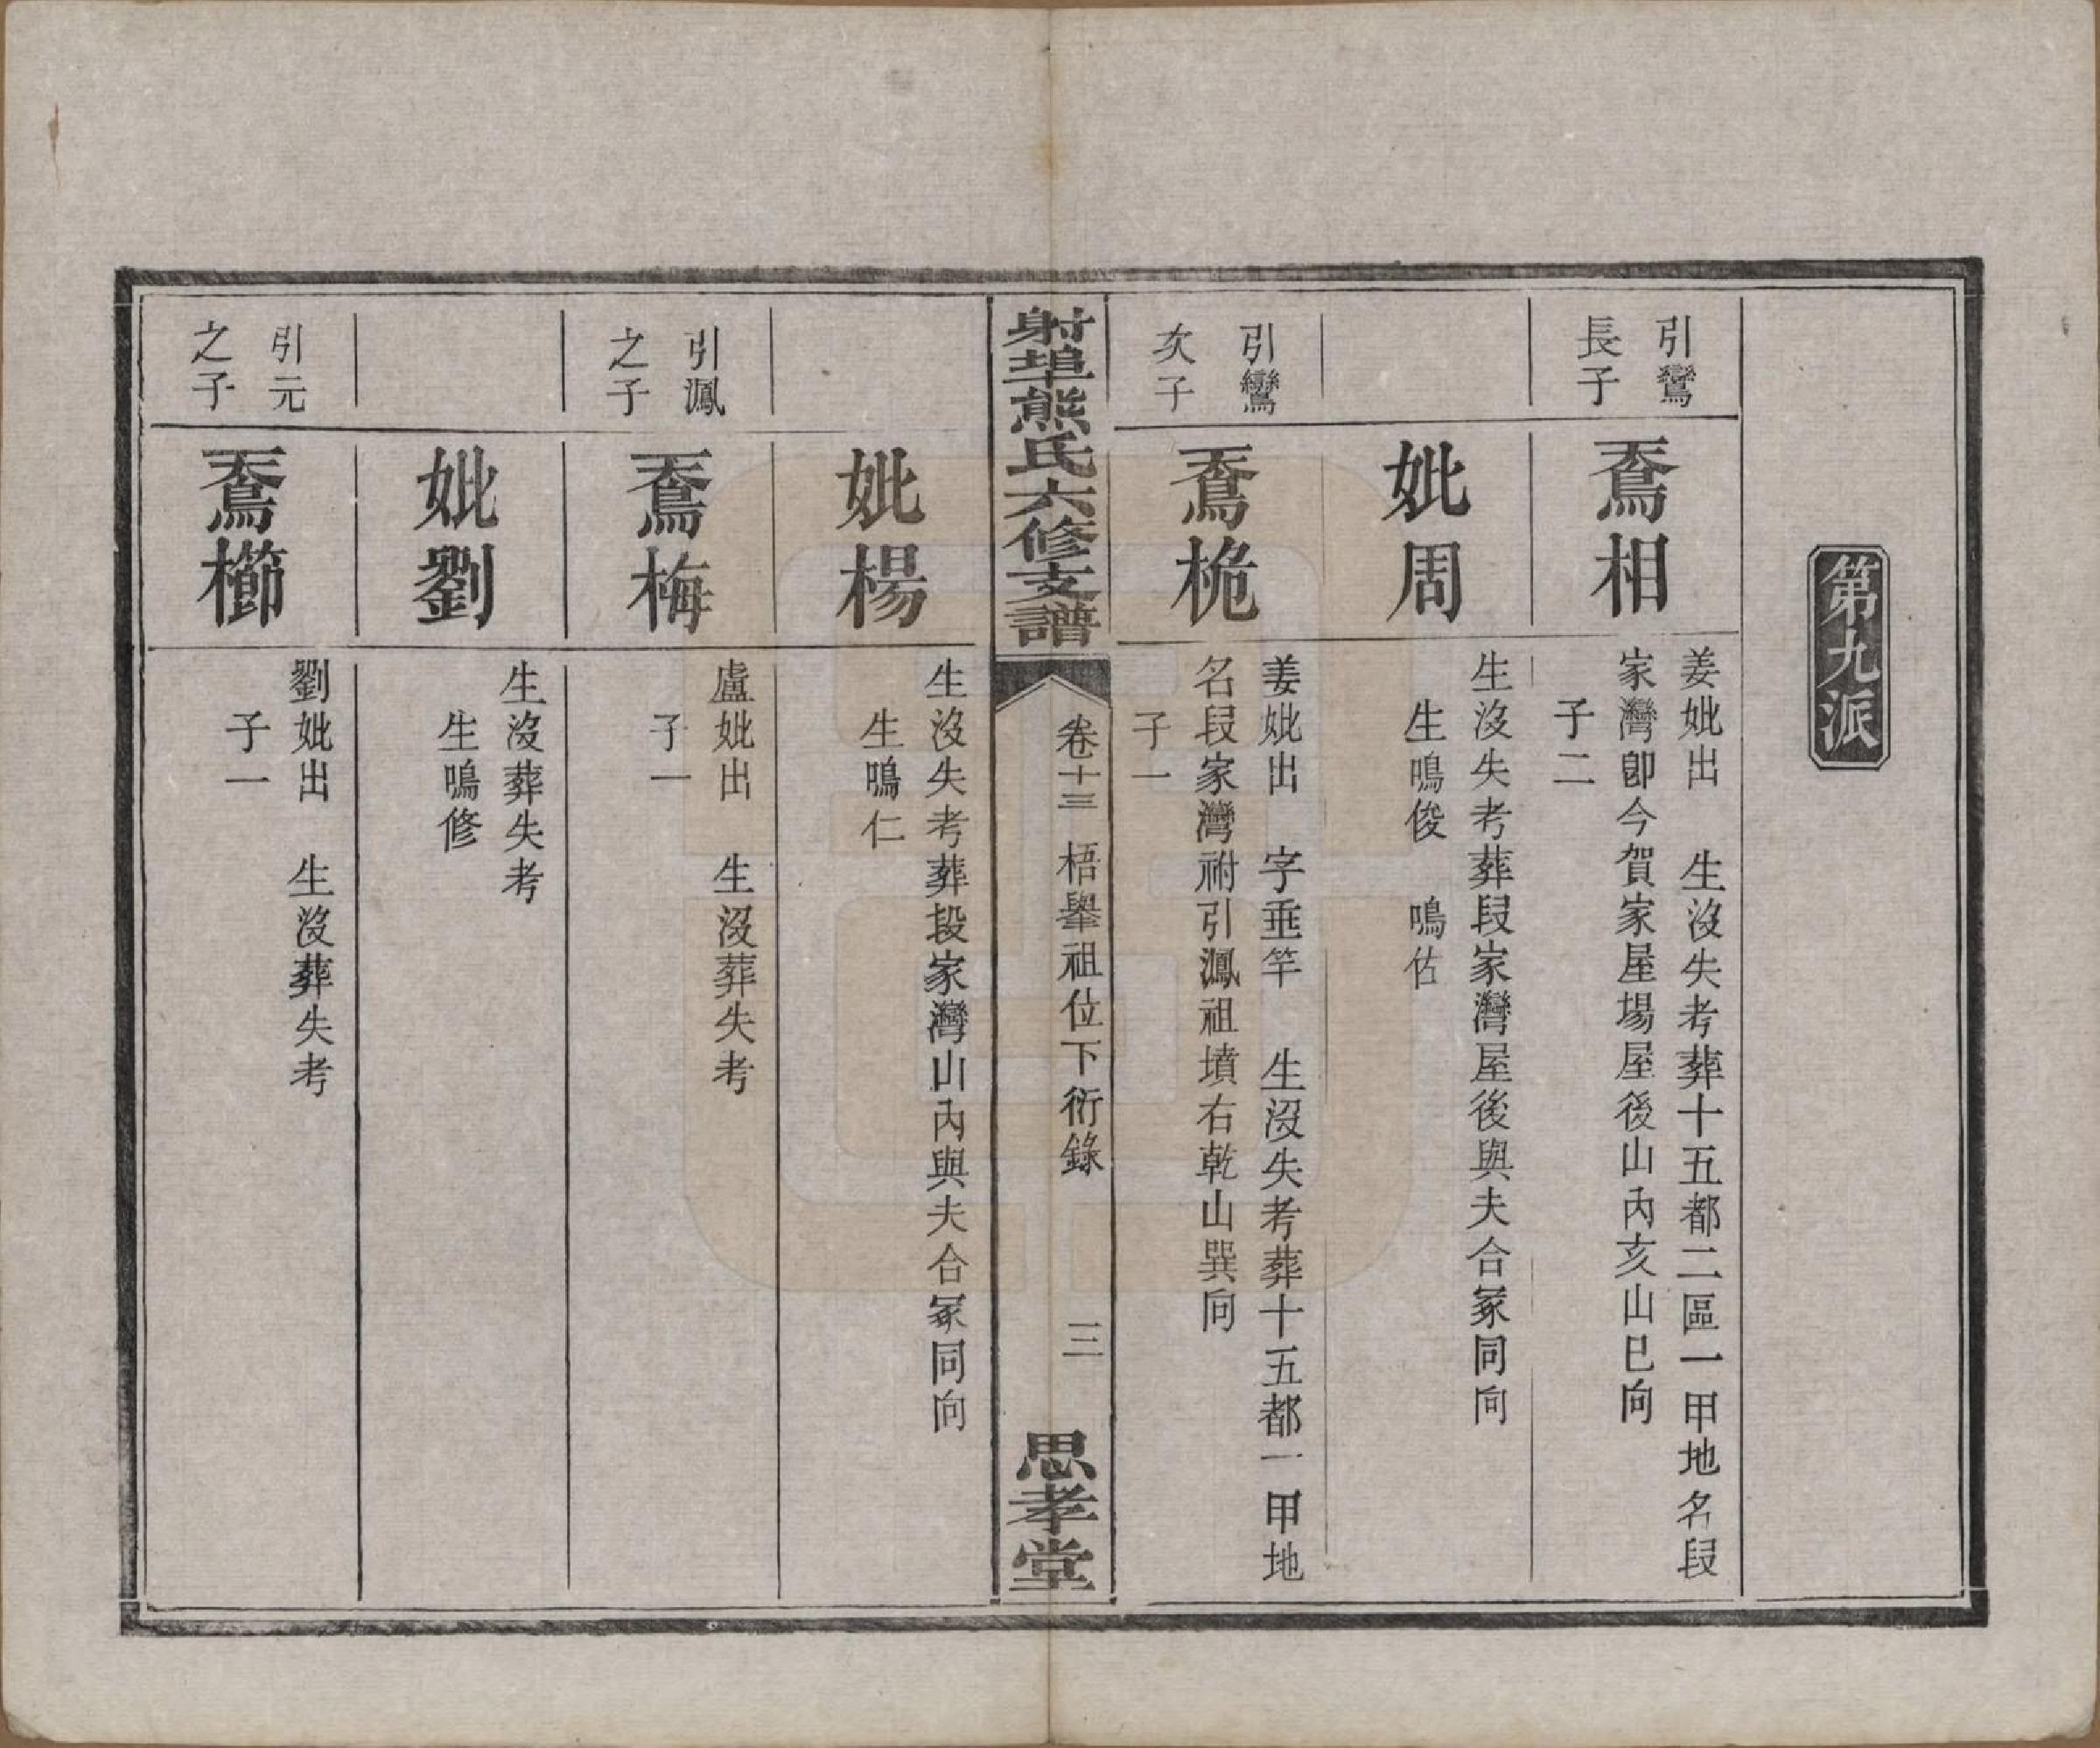 第九派
引鸞
長子
鴌相
姜妣出　生沒失考葬十五都二區一甲地名段
家灣卽今賀家屋場屋後山內亥山巳向
子二
妣周
生沒失考葬段家灣屋後與夫合冢同向
生鳴俊　鳴佑
引鸞
次子
鴌桅
姜妣出　字垂竿　生沒失考葬十五都一甲地
名段家灣祔引鳳祖墳右乾山巽向
子一
射埠熊氏六修支譜
卷十三　梧舉祖位下衍錄
三
思孝堂
妣楊
生沒失考葬段家灣山內與夫合冢同向
生鳴仁
引鳳
之子
鴌梅
盧妣出　生沒葬失考
子一
妣劉
生沒葬失考
生鳴修
引元
之子
鴌櫛
劉妣出　生沒葬失考
子一